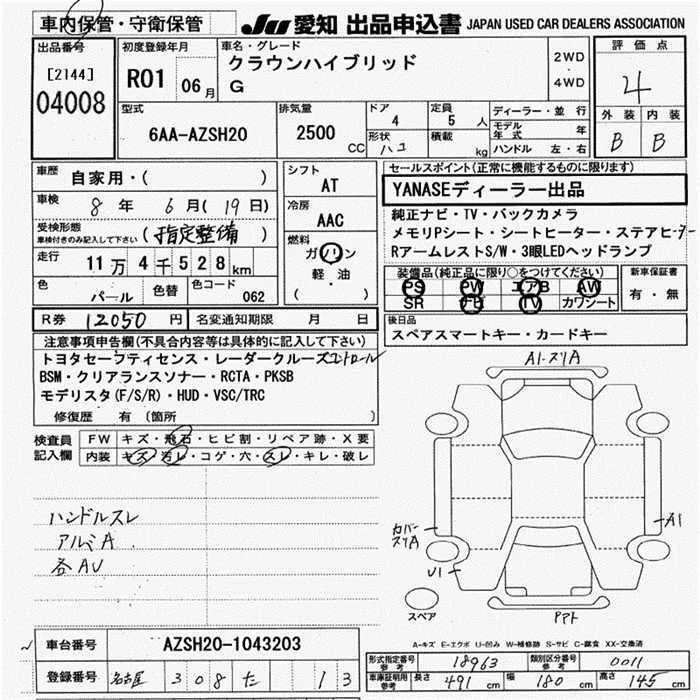 車内保管・守衛保管
JU 愛知 出品申込書 JAPAN USED CAR DEALERS ASSOCIATION
出品番号
[2144]
04008
初度登録年月
R01 06月
車名・グレード
クラウンハイブリッド
G
2WD
・
4WD
評価点
4
外装 内装
B B
型式
6AA-AZSH20
排気量
2500 CC
ドア
4
定員
5 人
形状
ハコ
積載
kg
ディーラー・並行
モデル年式 年
ハンドル 左・右
車歴
自家用・( )
車検
8 年 6 月(19 日)
受検形態
車検付きのみ記入して下さい
(指定整備)
走行
11万4千528km
色
パール
色替
色コード
062
シフト
AT
冷房
AAC
燃料
ガソリン
軽・油
( )
セールスポイント(正常に機能するものに限ります)
YANASEディーラー出品
純正ナビ・TV・バックカメラ
メモリPシート・シートヒーター・ステアヒーター
RアームレストS/W・3眼LEDヘッドランプ
装備品(純正品に限り○をつけてください)
PS PW エアB AW
SR ナビ TV カワシート
新車保証書
有・無
R券 12050 円
名変通知期限 月 日
後日品
スペアスマートキー・カードキー
注意事項申告欄(不具合内容等は具体的に記入して下さい)
トヨタセーフティセンス・レーダークルーズコントロール
BSM・クリアランスソナー・RCTA・PKSB
モデリスタ(F/S/R)・HUD・VSC/TRC
修復歴 有(箇所 )
検査員記入欄
FW キズ・飛石・ヒビ割・リペア跡・X要
内装 キズ・汚レ・コゲ・穴・スレ・キレ・破レ
ハンドルスレ
アルミA
各AU
A1・スリA
カバースリA
A1
U1
スペア
アト
A-キズ E-エクボ U-凹み W-補修跡 S-サビ C-腐食 XX-交換済
車台番号 AZSH20-1043203
登録番号 名古屋 308 た 13
型式指定番号
参考
18963
類別区分番号
参考
0011
車庫証明用
参考
長さ 491 cm 幅 180 cm 高さ 145 cm